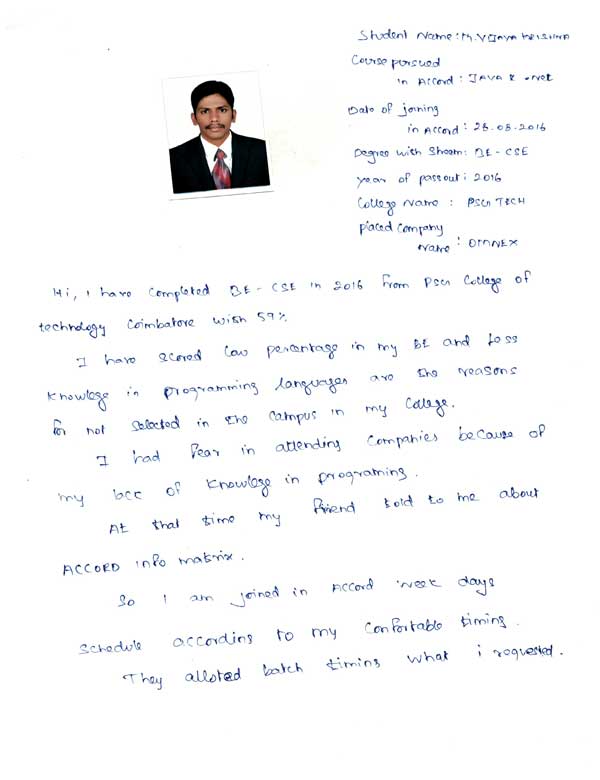 Student Name: M. VIJAYA KRISHNA
Course pursued
in Accord: JAVA & .Net
Date of joining
in Accord: 25.08.2016
Degree with Stream: BE-CSE
year of passout: 2016
College Name: PSG TECH
placed Company
Name: OMNEX
Hi, I have completed BE-CSE in 2016 from PSG College of
technology Coimbatore with 59%
I have scored low percentage in my BE and Less
knowlege in programming languages are the reasons
for not selected in the campus in my College.
I had fear in attending companies because of
my lacc of knowlege in programing.
At that time my friend told to me about
ACCORD info matrix.
So I am joined in Accord week days
schedule according to my confortable timing.
They alloted batch timing what i requested.